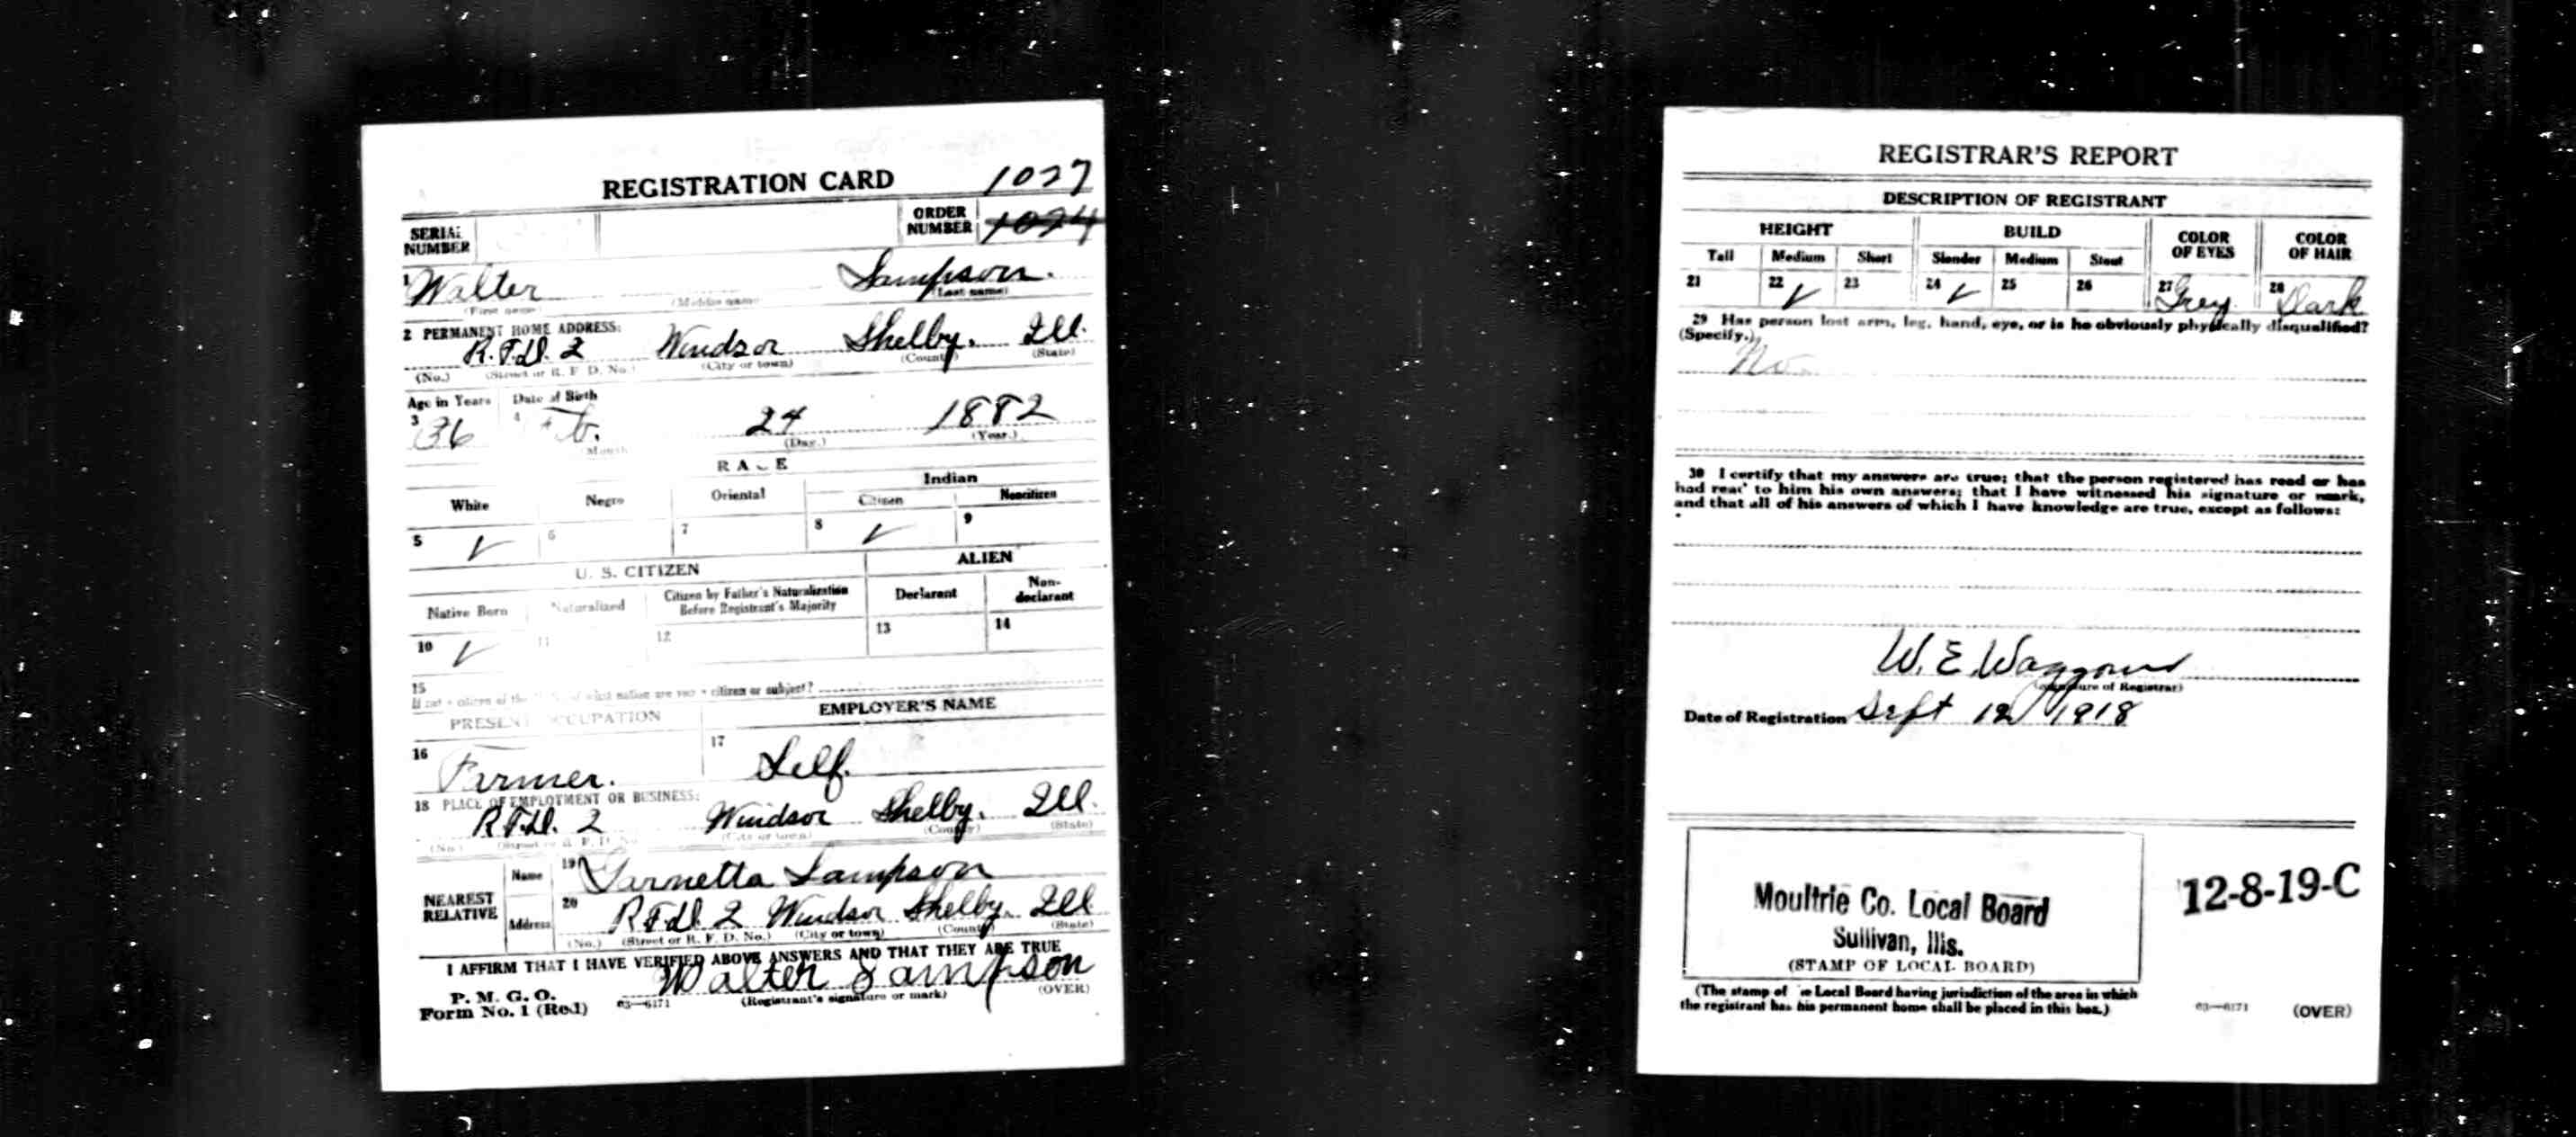 REGISTRATION CARD 1027
SERIAL NUMBER ORDER NUMBER 1024
1 Walter Sampson.
(First name) (Middle name) (Last name)
2 PERMANENT HOME ADDRESS:
R.F.D. 2 Windsor Shelby. Ill.
(No.) (Street or R. F. D. No.) (City or town) (County) (State)
Age in Years Date of Birth
3 36 4 Feb. 24 1882
(Month) (Day.) (Year.)
RACE
White Negro Oriental Indian
Citizen Noncitizen
5 ✓ 6 7 8 ✓ 9
U. S. CITIZEN ALIEN
Native Born Naturalized Citizen by Father's Naturalization Before Registrant's Majority Declarant Non-declarant
10 ✓ 11 12 13 14
15
If not a citizen of the U. S., of what nation are you a citizen or subject?
PRESENT OCCUPATION EMPLOYER'S NAME
16 Farmer. 17 Self.
18 PLACE OF EMPLOYMENT OR BUSINESS:
R.F.D. 2 Windsor Shelby. Ill.
(No.) (Street or R. F. D. No.) (City or town) (County) (State)
NEAREST RELATIVE Name 19 Garnetta Sampson
Address 20 R.F.D. 2 Windsor Shelby. Ill
(No.) (Street or R. F. D. No.) (City or town) (County) (State)
I AFFIRM THAT I HAVE VERIFIED ABOVE ANSWERS AND THAT THEY ARE TRUE
P. M. G. O.
Form No. 1 (Red) 03—6171 Walter Sampson
(Registrant's signature or mark) (OVER)
REGISTRAR'S REPORT
DESCRIPTION OF REGISTRANT
HEIGHT BUILD COLOR OF EYES COLOR OF HAIR
Tall Medium Short Slender Medium Stout
21 22 ✓ 23 24 ✓ 25 26 27 Grey 28 Dark
29 Has person lost arm, leg, hand, eye, or is he obviously physically disqualified?
(Specify.)
No.
30 I certify that my answers are true; that the person registered has read or has
had read to him his own answers; that I have witnessed his signature or mark,
and that all of his answers of which I have knowledge are true, except as follows:
W. E. Waggoner
(Signature of Registrar)
Date of Registration Sept 12 1918
Moultrie Co. Local Board
Sullivan, Ills.
(STAMP OF LOCAL BOARD)
12-8-19-C
(The stamp of the Local Board having jurisdiction of the area in which
the registrant has his permanent home shall be placed in this box.)
03—6171 (OVER)